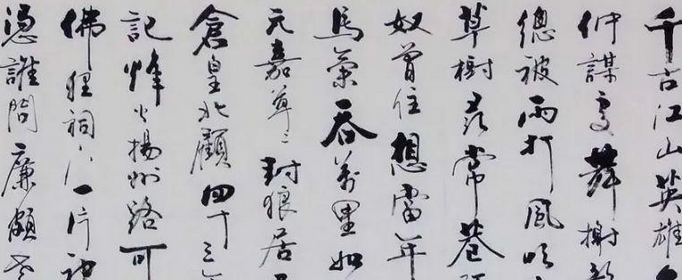 千古江山英雄
仲謀處舞榭
總被雨打風吹
草樹尋常巷
奴曾住想當年
馬氣吞萬里如
元嘉草々封狼居
倉皇北顧四十三年
記烽火揚州路可
佛狸祠下一片神
憑誰問廉頗老